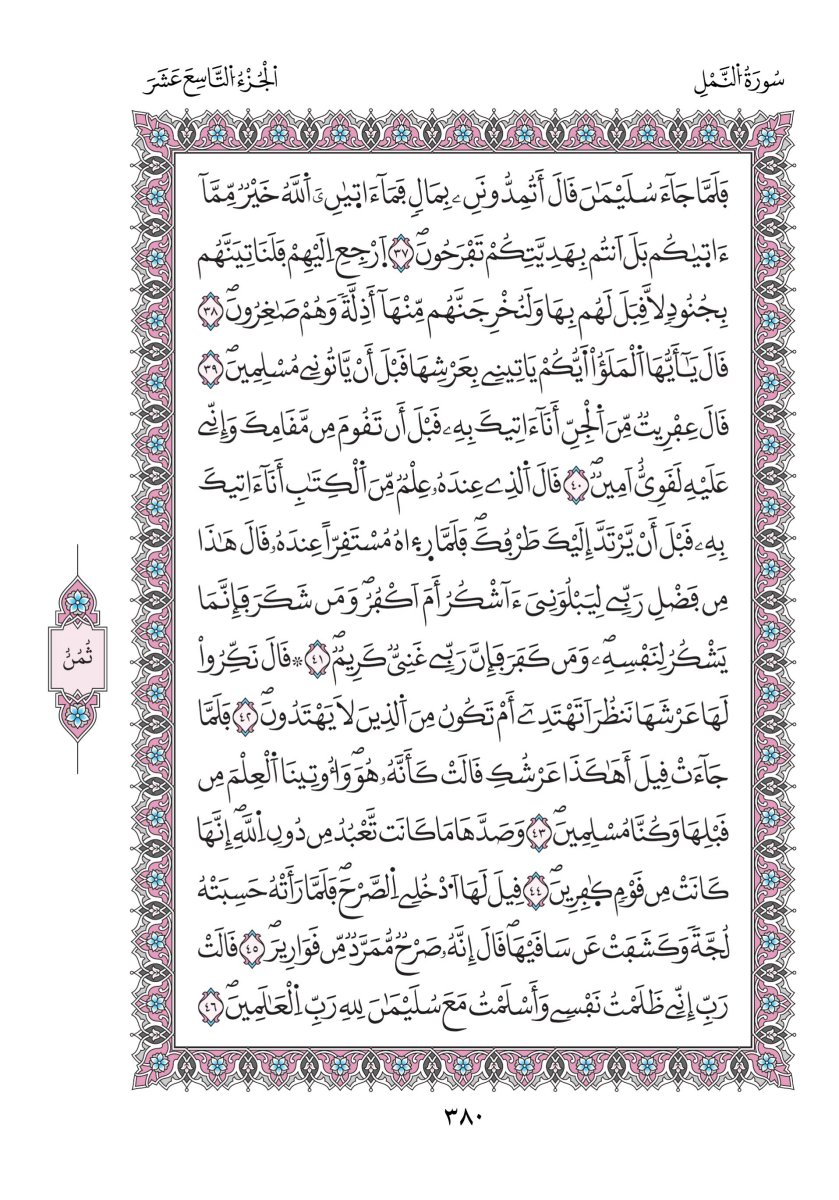 سُورَةُ اُ۬لنَّمْلِ
اَ۬لْجُزْءُ اُ۬لتَّاسِعَ عَشَرَ
فَلَمَّا جَآءَ سُلَيْمَٰنَ قَالَ أَتُمِدُّونَنِۦ بِمَالٖ فَمَآ ءَات۪يٰنِۦَ اَ۬للَّهُ خَيْرٞ مِّمَّآ
ءَات۪يٰكُمۖ بَلَ اَنتُم بِهَدِيَّتِكُمْ تَفْرَحُونَۖ ٣٧ اَ۪رْجِعِ اِلَيْهِمْ فَلَنَاتِيَنَّهُم
بِجُنُودٖ لَّا قِبَلَ لَهُم بِهَا وَلَنُخْرِجَنَّهُم مِّنْهَآ أَذِلَّةٗ وَهُمْ صَٰغِرُونَۖ ٣٨
قَالَ يَٰٓأَيُّهَا اَ۬لْمَلَؤُاْ اَيُّكُمْ يَاتِينِے بِعَرْشِهَا قَبْلَ أَنْ يَّاتُونِے مُسْلِمِينَۖ ٣٩
قَالَ عِفْرِيتٞ مِّنَ اَ۬لْجِنِّ أَنَآ ءَاتِيكَ بِهِۦ قَبْلَ أَن تَقُومَ مِن مَّقَامِكَ وَإِنِّے
عَلَيْهِ لَقَوِيٌّ اَمِينٞۖ ٤٠ قَالَ اَ۬لذِے عِندَهُۥ عِلْمٞ مِّنَ اَ۬لْكِتَٰبِ أَنَآ ءَاتِيكَ
بِهِۦ قَبْلَ أَنْ يَّرْتَدَّ إِلَيْكَ طَرْفُكَۖ فَلَمَّا ر۪ء۪اهُ مُسْتَقِرّاً عِندَهُۥ قَالَ هَٰذَا
مِن فَضْلِ رَبِّے لِيَبْلُوَنِيَ ءَآشْكُرُ أَمَ اَكْفُرُۖ وَمَن شَكَرَ فَإِنَّمَا
يَشْكُرُ لِنَفْسِهِۦۖ وَمَن كَفَرَ فَإِنَّ رَبِّے غَنِيّٞ كَرِيمٞۖ ٤١ ۞قَالَ نَكِّرُواْ
لَهَا عَرْشَهَا نَنظُرَ اَتَهْتَدِےٓ أَمْ تَكُونُ مِنَ اَ۬لذِينَ لَا يَهْتَدُونَۖ ٤٢ فَلَمَّا
جَآءَتْ قِيلَ أَهَٰكَذَا عَرْشُكِ قَالَتْ كَأَنَّهُۥ هُوَۖ وَأُوتِينَا اَ۬لْعِلْمَ مِن
قَبْلِهَا وَكُنَّا مُسْلِمِينَۖ ٤٣ وَصَدَّهَا مَا كَانَت تَّعْبُدُ مِن دُونِ اِ۬للَّهِۖ إِنَّهَا
كَانَتْ مِن قَوْمٖ كٰ۪فِرِينَۖ ٤٤ قِيلَ لَهَا اَ۟دْخُلِے اِ۬لصَّرْحَۖ فَلَمَّا رَأَتْهُ حَسِبَتْهُ
لُجَّةٗ وَكَشَفَتْ عَن سَاقَيْهَاۖ قَالَ إِنَّهُۥ صَرْحٞ مُّمَرَّدٞ مِّن قَوَارِيرَۖ ٤٥ قَالَتْ
رَبِّ إِنِّے ظَلَمْتُ نَفْسِے وَأَسْلَمْتُ مَعَ سُلَيْمَٰنَ لِلهِ رَبِّ اِ۬لْعَٰلَمِينَۖ ٤٦
ثُمُنُ
٣٨٠